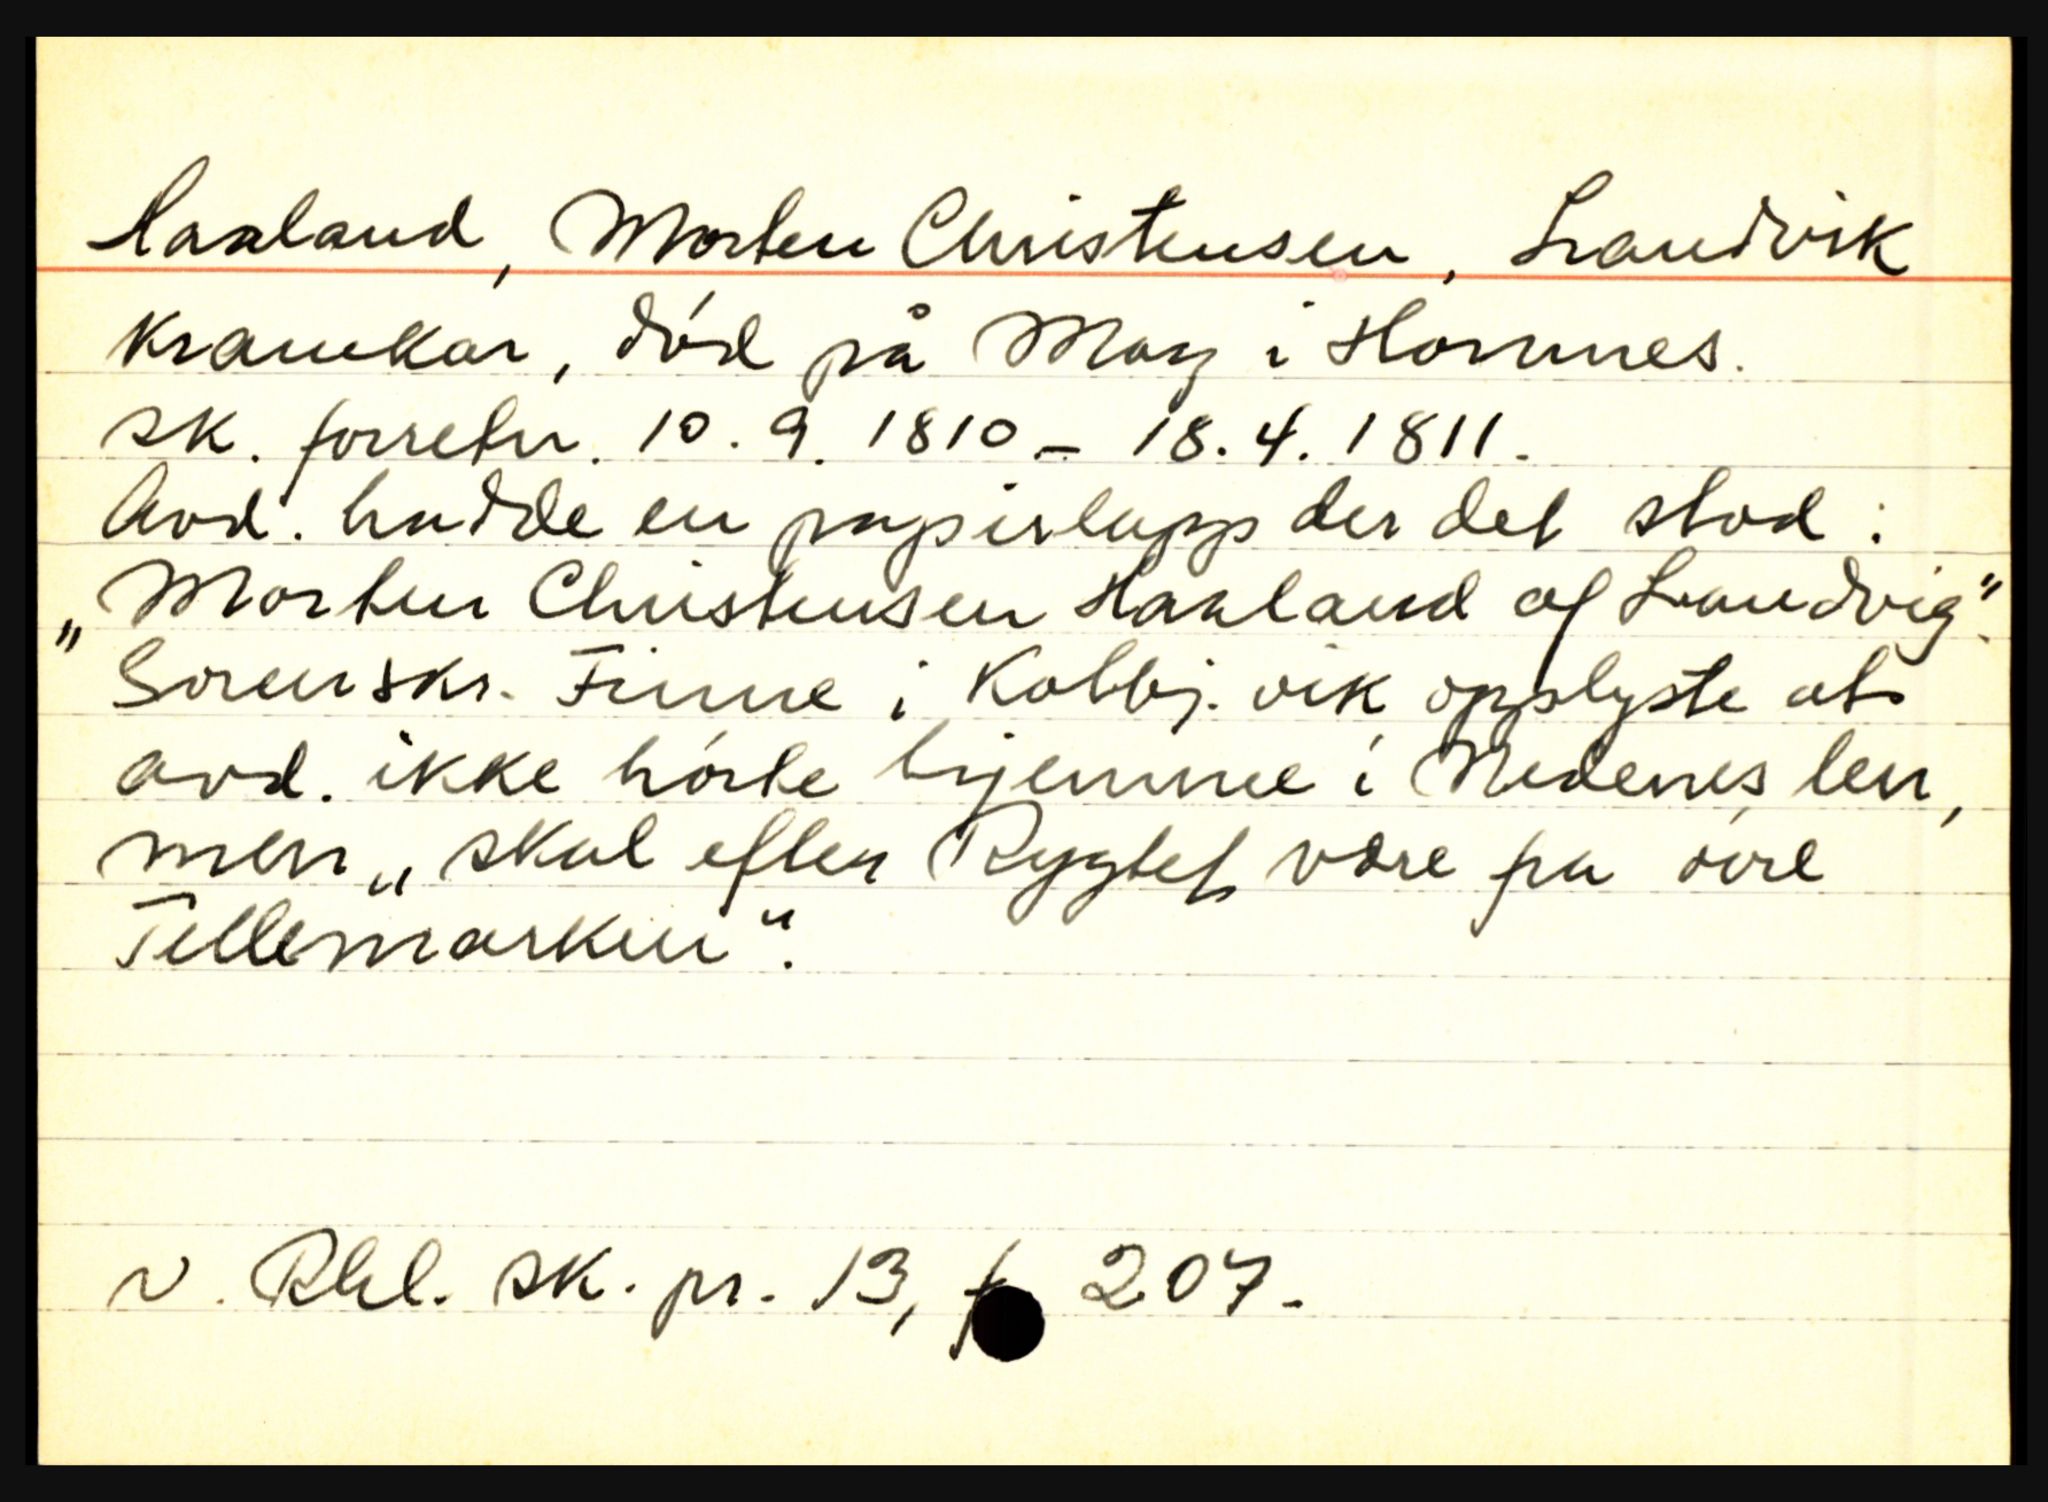 Haaland, Morten Christensen, Landvik
kramkar, død på Moy i Hommes.
sk. forretn. 10. 9. 1810 - 18. 4. 1811.
Avd. hadde en papirlapp der det stod:
„Morten Christensen Haaland af Landvig".
Sorenskr. Finne i Kolbj. vik opplyste at
avd. ikke hörte hjemme i Nedenes len,
men „skal efter Rygtet være fra övre
Tellemarken".
v. Rbl. sk. pr. 13, f 207.